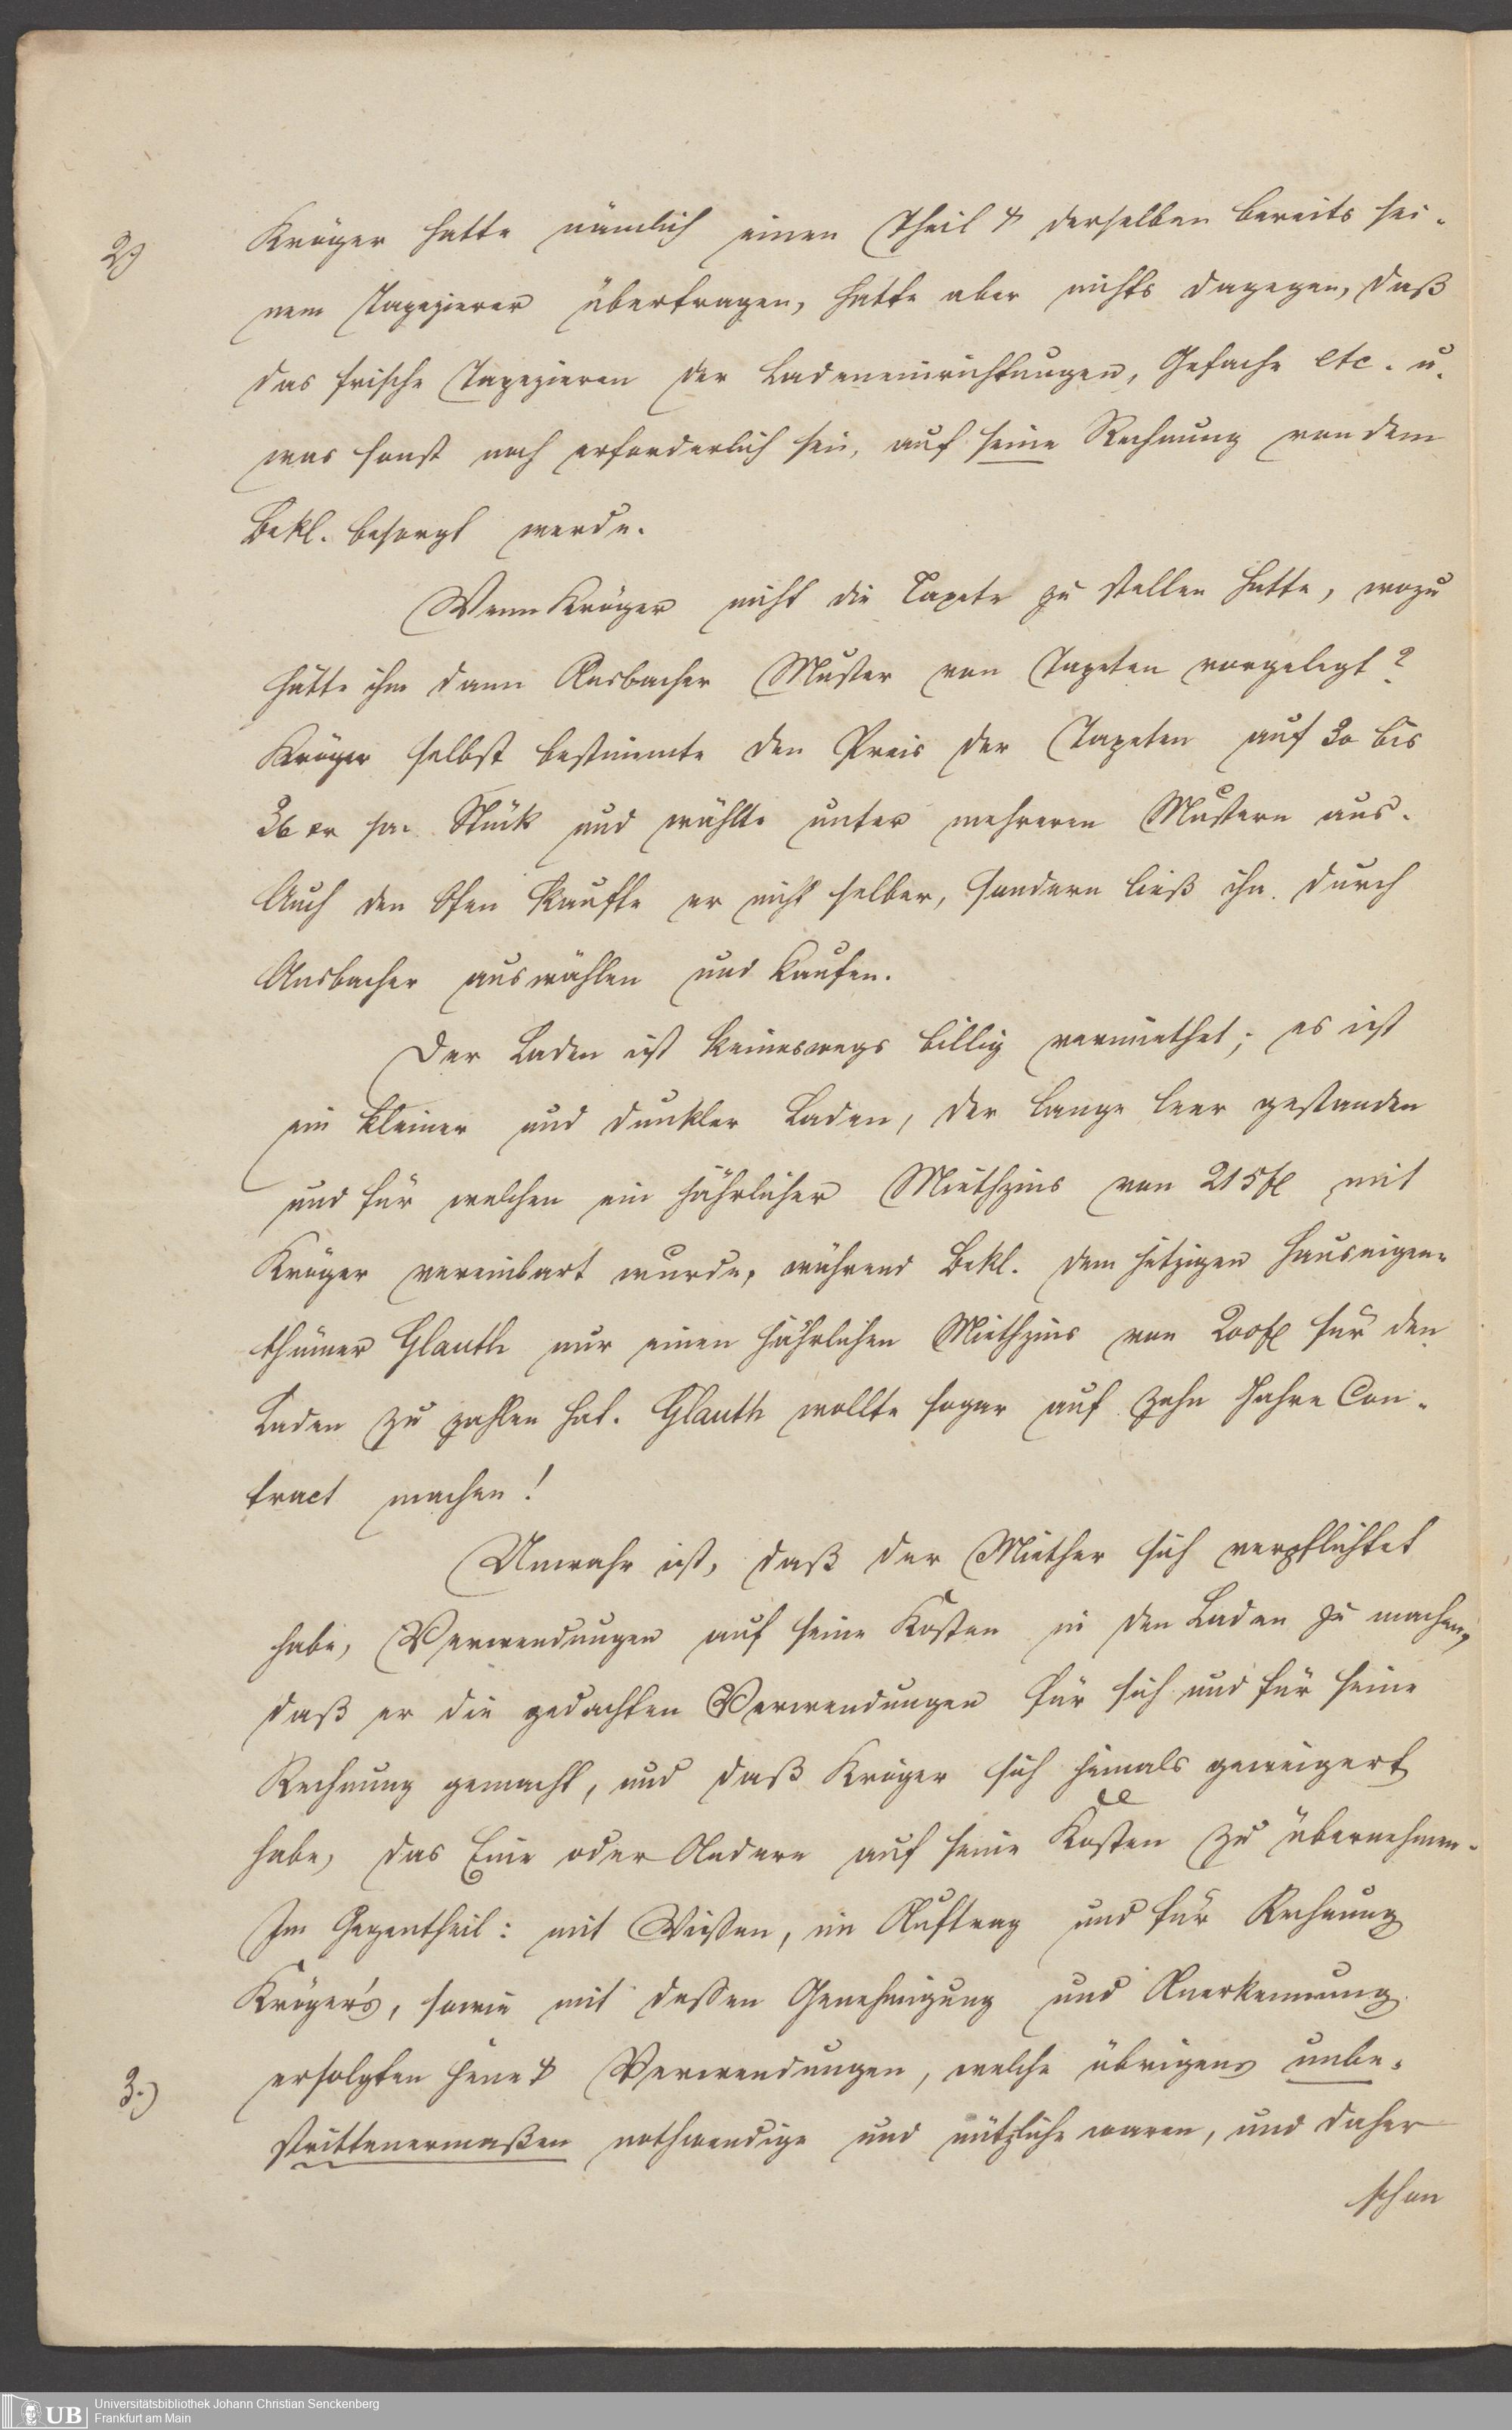 2) Kröger hatte nämlich einen Theil derselben bereits sei-
nem Tapezierer übertragen, hatte aber nichts dagegen, daß
das frische Tapezieren der Ladeneinrichtungen, Gefache etc. u.
was sonst noch erforderlich sei, auf seine Rechnung von dem
Bekl. besorgt werde.
Wenn Kröger nicht die Tapete zu stellen hatte, wozu
hätte ihm dann Ansbacher Muster von Tapeten vorgelegt?
Kröger selbst bestimmte den Preis der Tapeten auf 30 bis
36 xr per Stück und wählte unter mehreren Mustern aus.
Auch den Ofen kaufte er nicht selber, sondern ließ ihn durch
Ansbacher auswählen und kaufen.
Der Laden ist keineswegs billig vermiethet; es ist
ein kleiner und dunkler Laden, der lange leer gestanden
und für welchen ein jährlicher Miethzins von 215 fl mit
Kröger vereinbart wurde, während Bekl. dem jetzigen Hauseigen-
thümer Glauth nur einen jährlichen Miethzins von 200 fl für den
Laden zu zahlen hat. Glauth wollte sogar auf zehn Jahre Con-
tract machen!
Unwahr ist, daß der Miether sich verpflichtet
habe, Verwendungen auf seine Kosten in den Laden zu machen,
daß er die gedachten Verwendungen für sich und für seine
Rechnung gemacht, und daß Kröger sich jemals geweigert
habe, das Eine oder Andere auf seine Kosten zu übernehmen.
Im Gegentheil: mit Wissen, im Auftrag und für Rechnung
Kröger's, sowie mit dessen Genehmigung und Anerkennung
3.) erfolgten jene Verwendungen, welche übrigens unbe-
strittenermaßen nothwendige und nützliche waren, und daher
schon
Universitätsbibliothek Johann Christian Senckenberg
Frankfurt am Main
UB